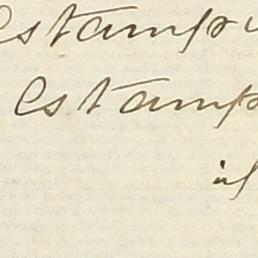 Estamp
Estamp
id